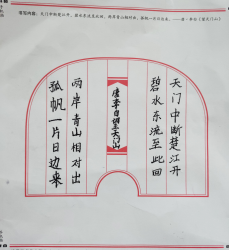 天门中断楚江开，碧水东流至此回。两岸青山相对出，孤帆一片日边来。——唐·李白《望天门山》
天门中断楚江开
碧水东流至此回
唐李白望天门山
两岸青山相对出
孤帆一片日边来